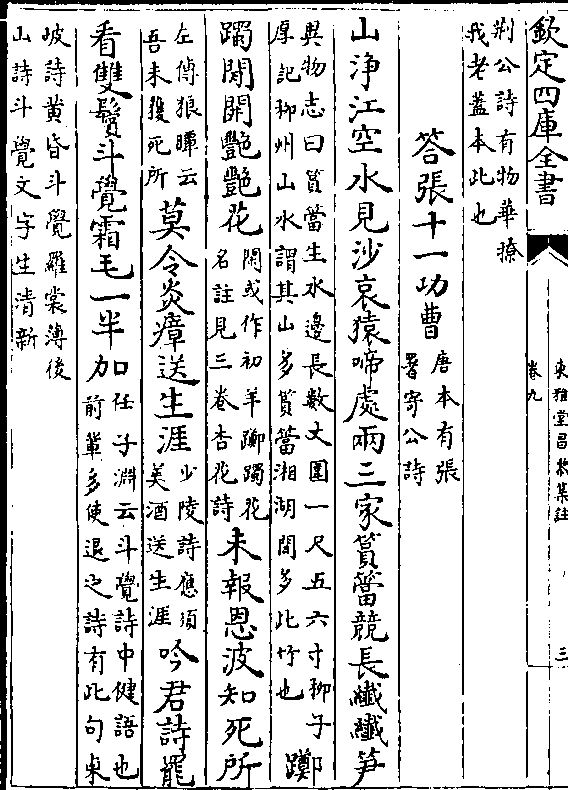 欽定四庫全書
東雅堂昌黎集註
卷九
三
荆公詩有物華撩
我老蓋本此也
答張十一功曹
唐本有張
署寄公詩
山淨江空水見沙哀猿啼處兩三家篔簹競長纎纎笋
異物志曰篔簹生水邊長數丈圍一尺五六寸柳子
厚記柳州山水謂其山多篔簹湘湖間多此竹也
躑
躅閒開艶艶花
閒或作初羊躑躅花
名註見三卷杏花詩
未報恩波知死所
左傳狼瞫云
吾未獲死所
莫令炎瘴送生涯
少陵詩應須
美酒送生涯
吟君詩罷
看雙鬢斗覺霜毛一半加
任子淵云斗覺詩中健語也
前輩多使退之詩有此句東
坡詩黄昏斗覺羅裳薄後
山詩斗覺文字生清新